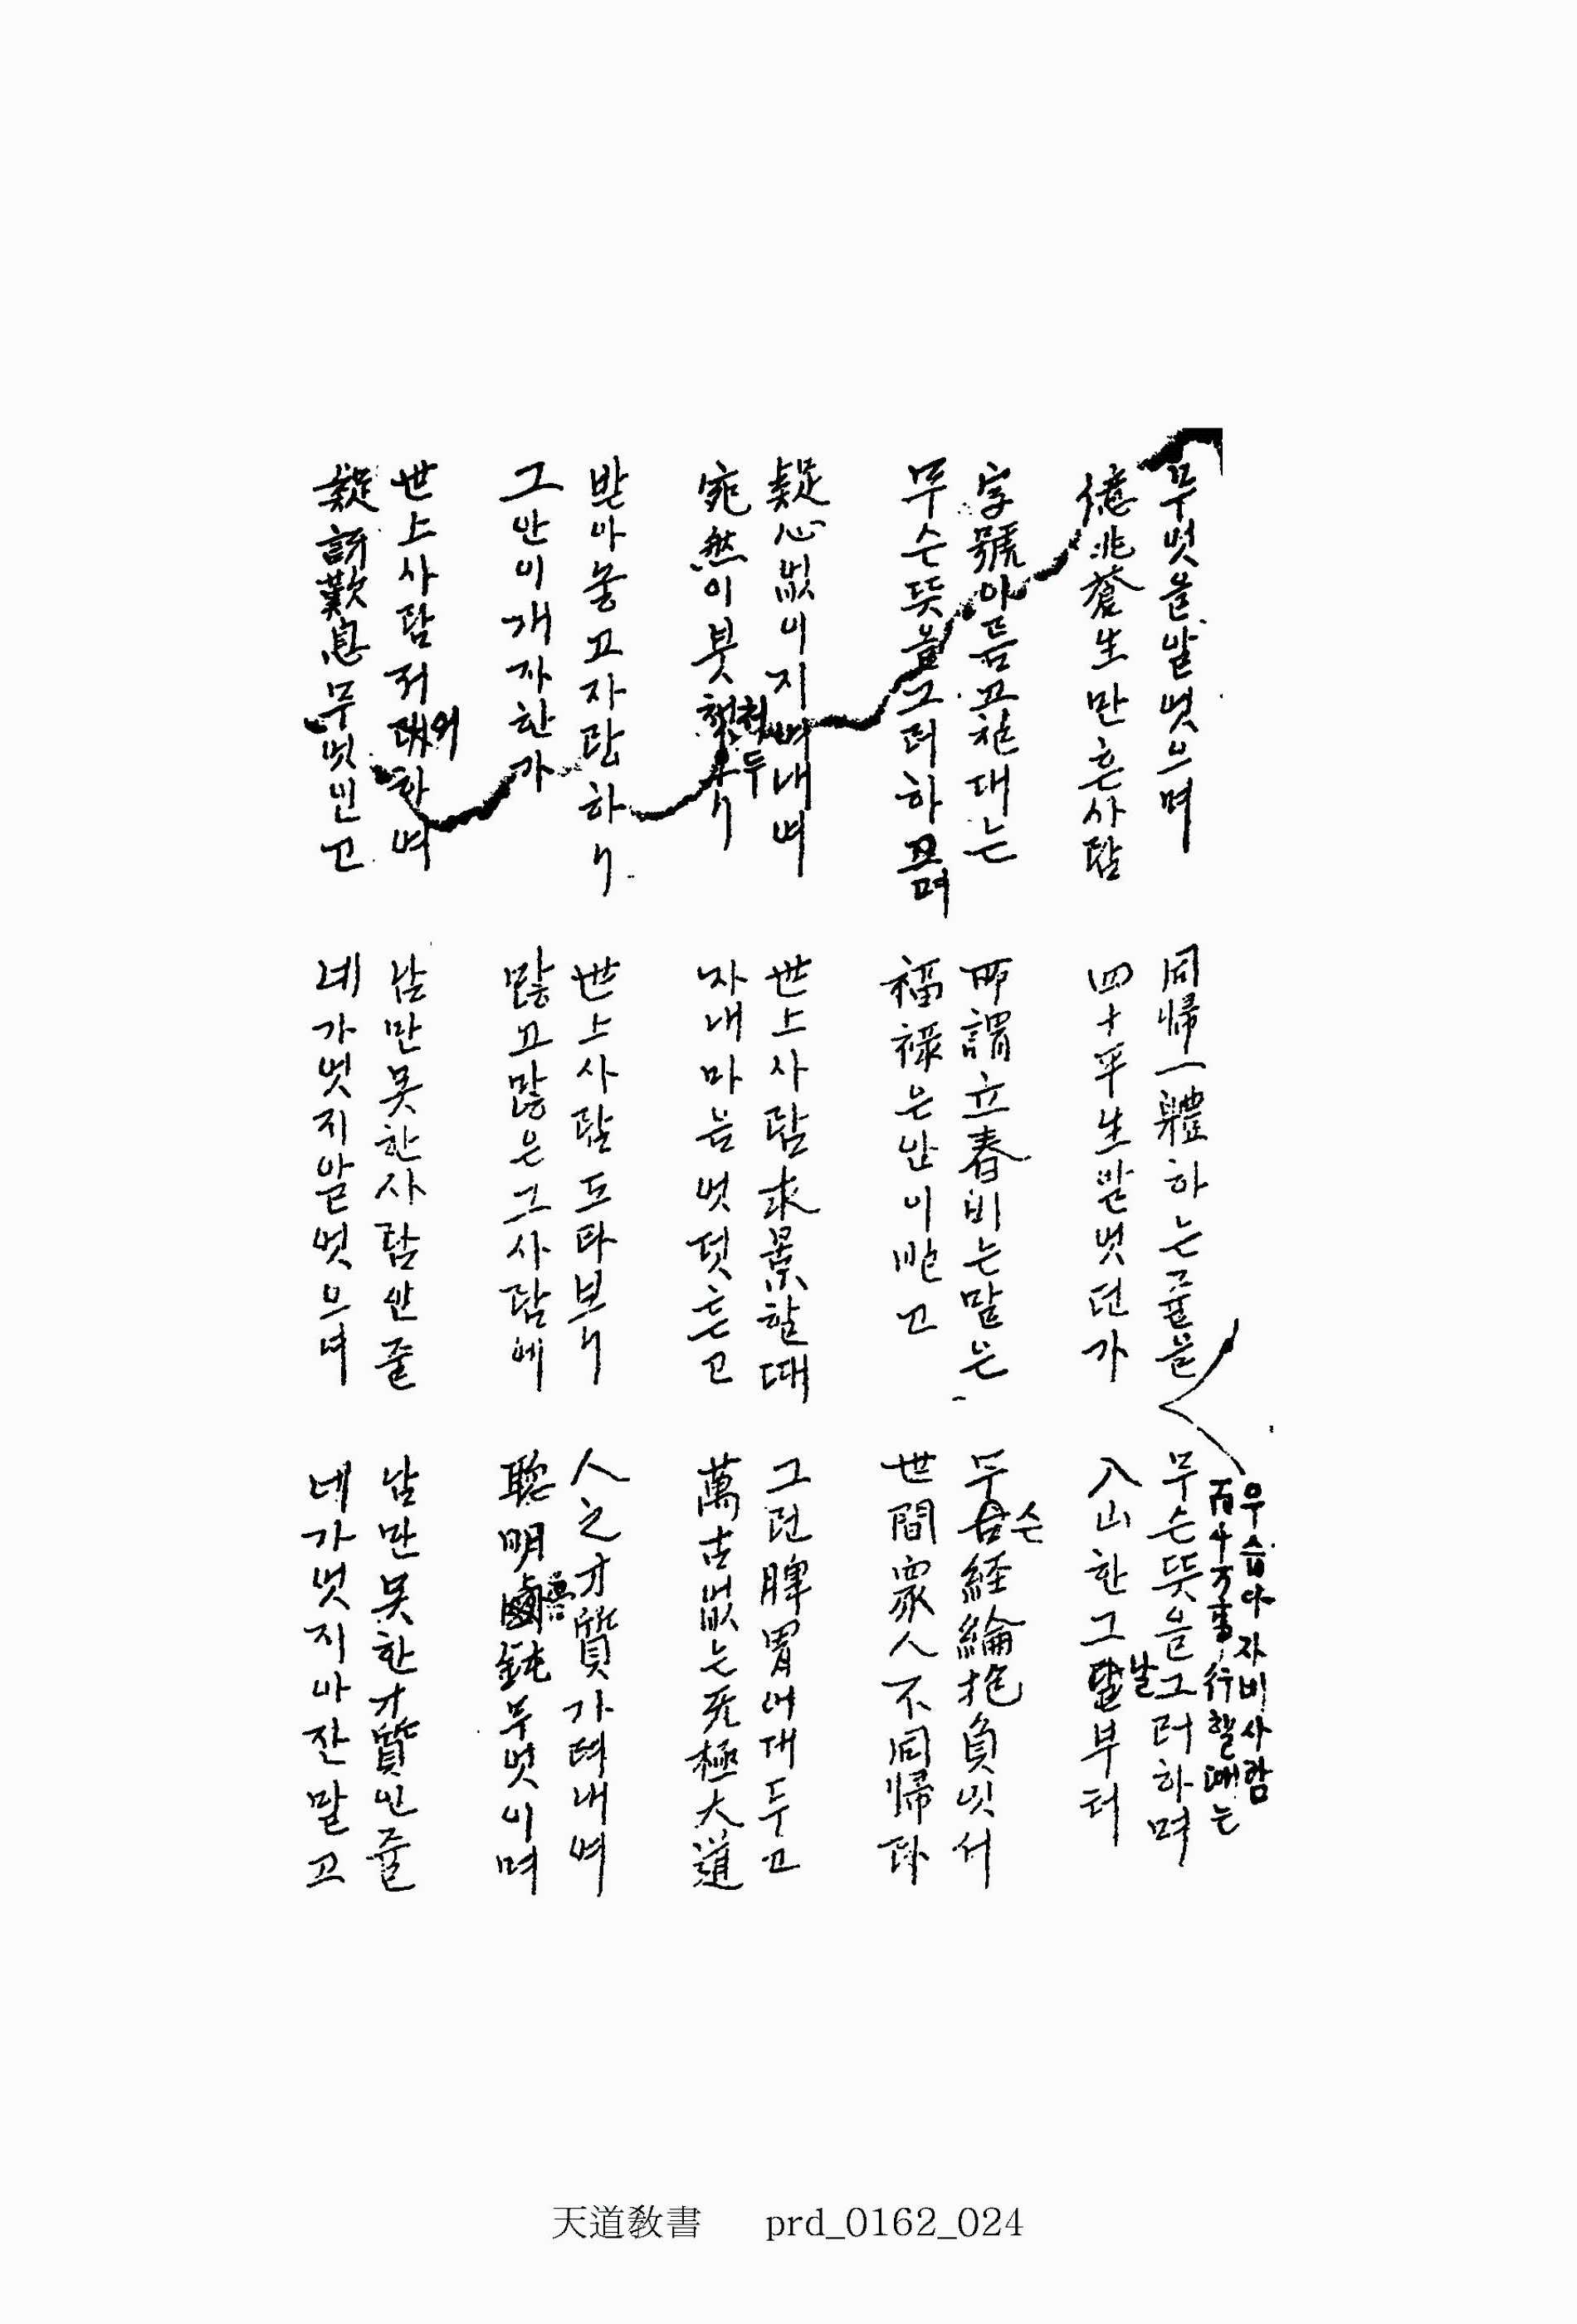 무엇을알엇으며
億兆蒼生만흔사람
同帰一軆하는줄을
四十平生알엇던가
우습다자비사람
百千万事行할때는
무슨뜻을그러하며
入山한그날부터
字號아름고칠대는
무슨뜻을그러하며
所謂立春비는말은
福祿은안이빌고
무슨経綸抱負잇서
世間衆人不同帰라
疑心없이지여내여
宛然이붓처두니
世上사람求景할때
자내마음엇덧흔고
그런脾胃어대두고
萬古없는无極大道
받아놓고자랑하니
그안이개자한가
世上사람도라보니
많고많은그사람에
人之才質가려내여
聡明魯鈍무엇이며
世上사람저러하여
疑訝歎息무엇인고
남만못한사람인줄
네가엇지알엇으며
남만못한才質인줄
네가엇지아잔말고
天道敎書 prd_0162_024